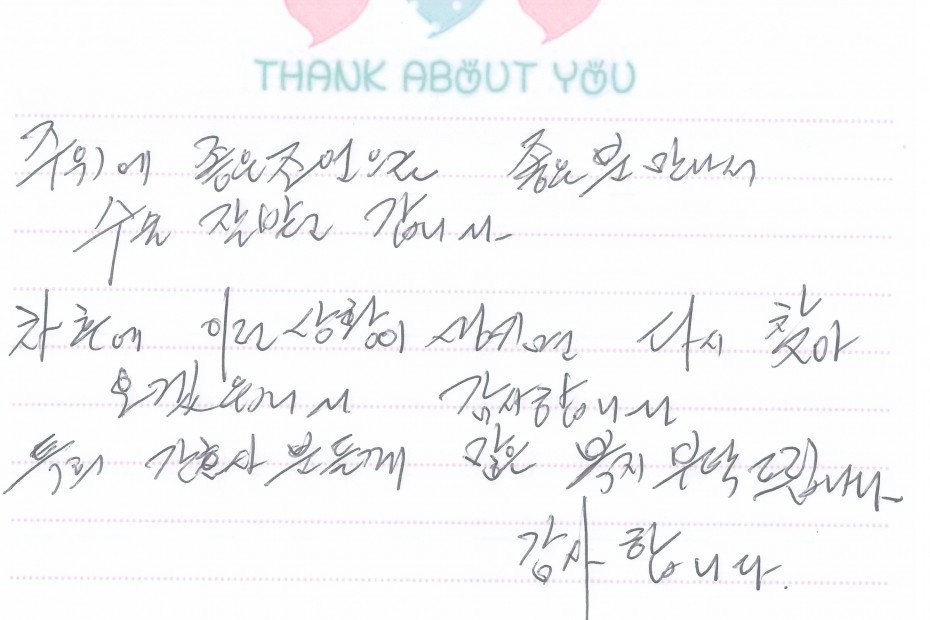 THANK ABOUT YOU
주위에 좋은조언있는 좋은분 만나서
수술 잘받고 갑니다
차후에 이런상황이 생기면 다시 찾아
오겠습니다 감사합니다
특히 간호사분들께 많은 복지부탁드립니다
감사합니다.